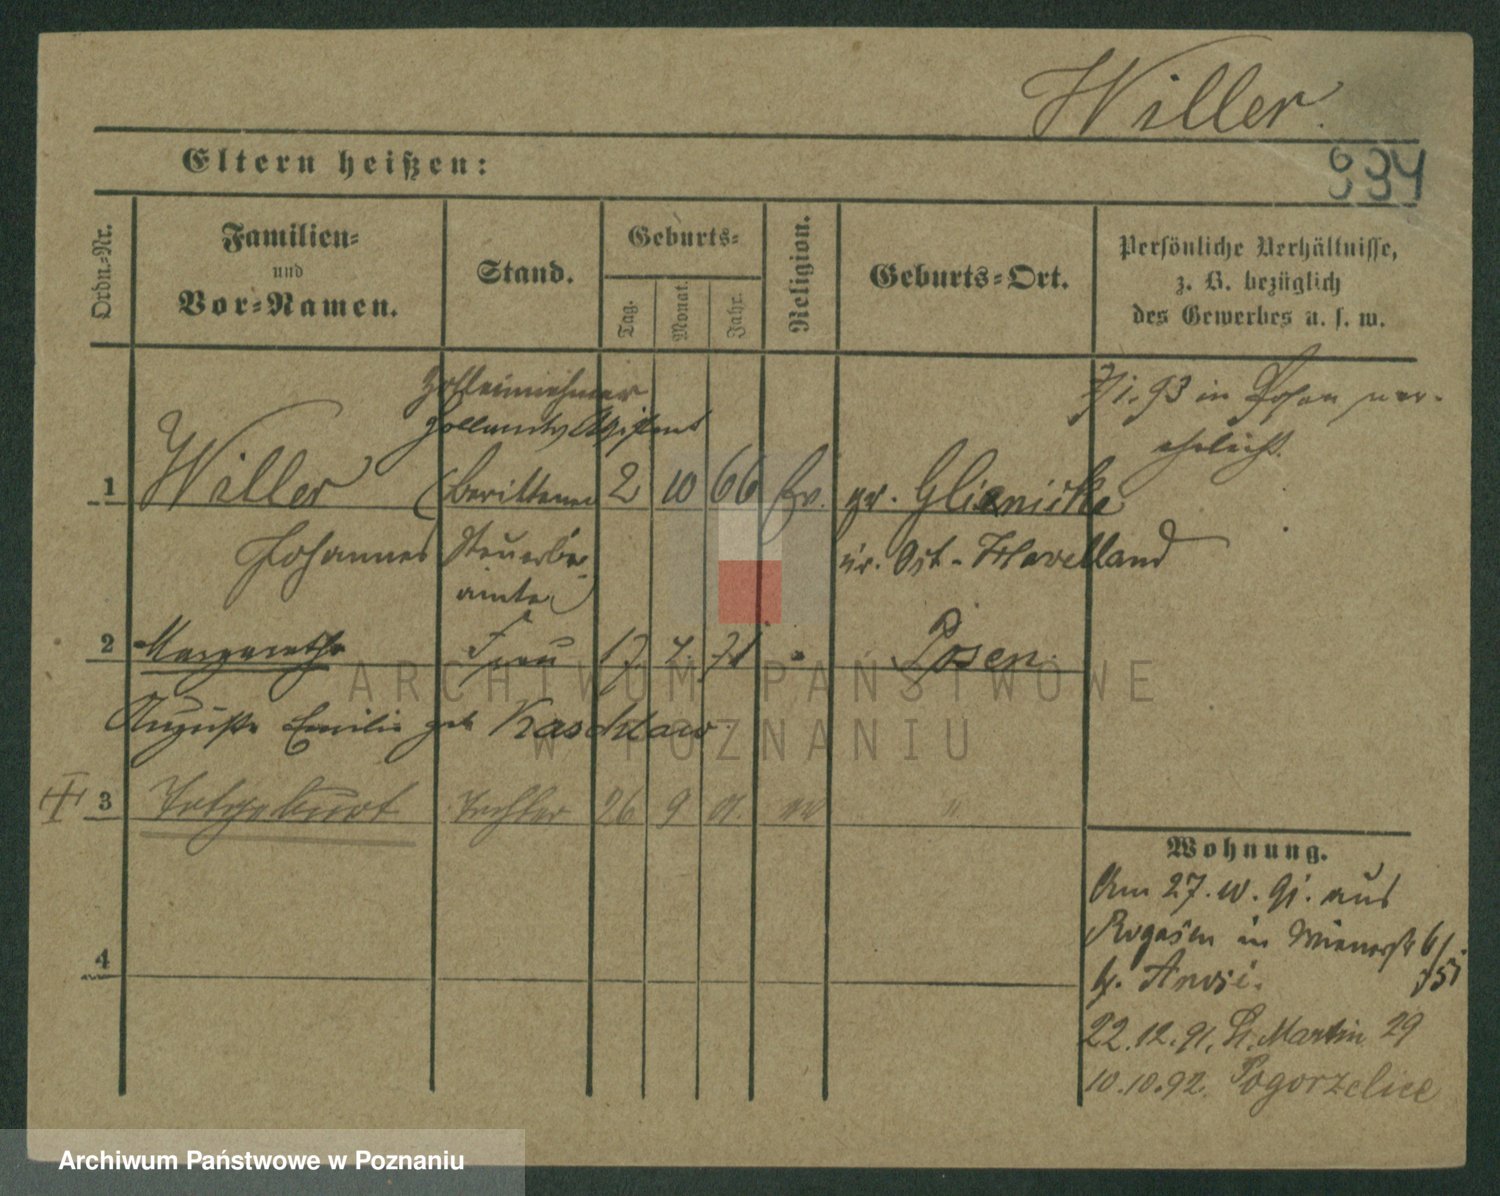 Willer.
994
Eltern heißen:
Ordn.-Nr.
Familien-
und
Vor-Namen.
Stand.
Geburts-
Tag.
Monat.
Jahr.
Religion.
Geburts-Ort.
Persönliche Verhältnisse,
z. B. bezüglich
des Gewerbes u. s. w.
Zolleinnehmer
Assistent
7/1.93 in Posen ver-
ehelicht.
1 Willer (berittener 2 10 66 Ev. gr. Glienicke
Johannes Steuerbe- Kr. Ost-Havelland
amter)
2 Margarethe Frau 17 7. 71 " Posen.
Auguste Emilie geb Kaschlaw
3 Totgeburt Tochter 26 9 ev "
4
Wohnung.
Am 27.10.91. aus
Rogasen in Wienerstr 6/.
b. 
22.12.91. St. Martin 29
10.10.92. Pogorzelice
ARCHIWUM PAŃSTWOWE
W POZNANIU
Archiwum Państwowe w Poznaniu